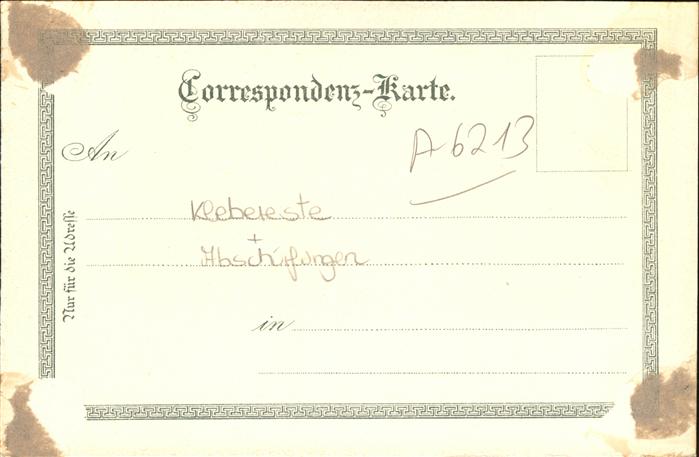 Correspondenz-Karte.
A6213
An
Klebereste
+
Abschürfungen
in
Nur für die Adresse